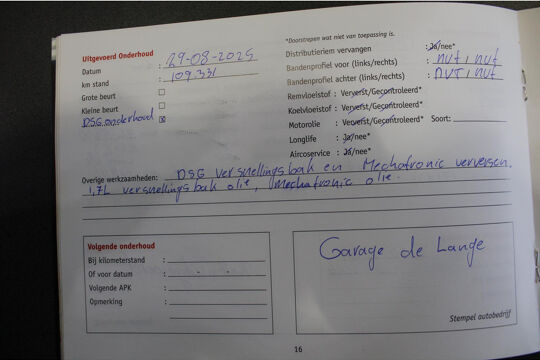 *Doorstrepen wat niet van toepassing is.
Uitgevoerd Onderhoud
Datum : 29-08-2025
km stand : 109.331
Grote beurt
Kleine beurt
DSG onderhoud
Distributieriem vervangen : Ja/nee*
Bandenprofiel voor (links/rechts) : nvt / nvt
Bandenprofiel achter (links/rechts) : nvt / nvt
Remvloeistof : Ververst/Gecontroleerd*
Koelvloeistof : Ververst/Gecontroleerd*
Motorolie : Ververst/Gecontroleerd* Soort:
Longlife : Ja/nee*
Aircoservice : Ja/nee*
Overige werkzaamheden: DSG versnellingsbak en Mechatronic verversen.
1,7L versnellingsbak olie, Mechatronic olie.
Volgende onderhoud
Bij kilometerstand :
Of voor datum : - -
Volgende APK :
Opmerking :
Garage de Lange
Stempel autobedrijf
16